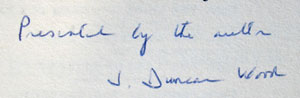 Presented by the author
J. Duncan Wood